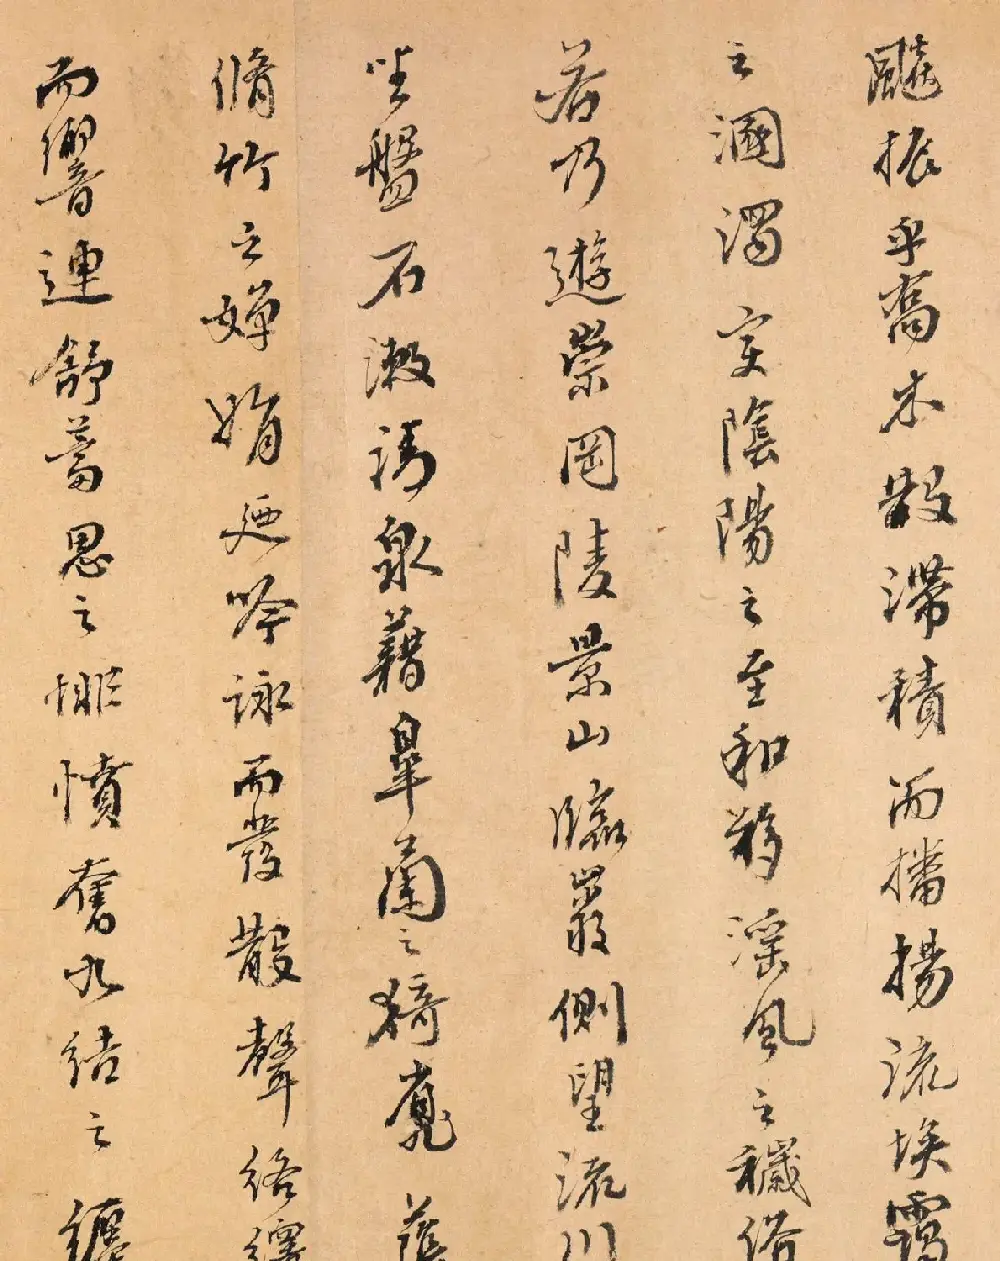 飈振乎喬木散滯積而播揚流埃靄
之溷濁變陰陽之至和移淫風之穢俗
若乃遊崇岡陵景山臨巖側望流川
坐盤石漱清泉藉皋蘭之猗靡蔭
脩竹之嬋娟廼吟詠而發散聲絡繹
而響連舒蓄思之悱憤奮久結之纏